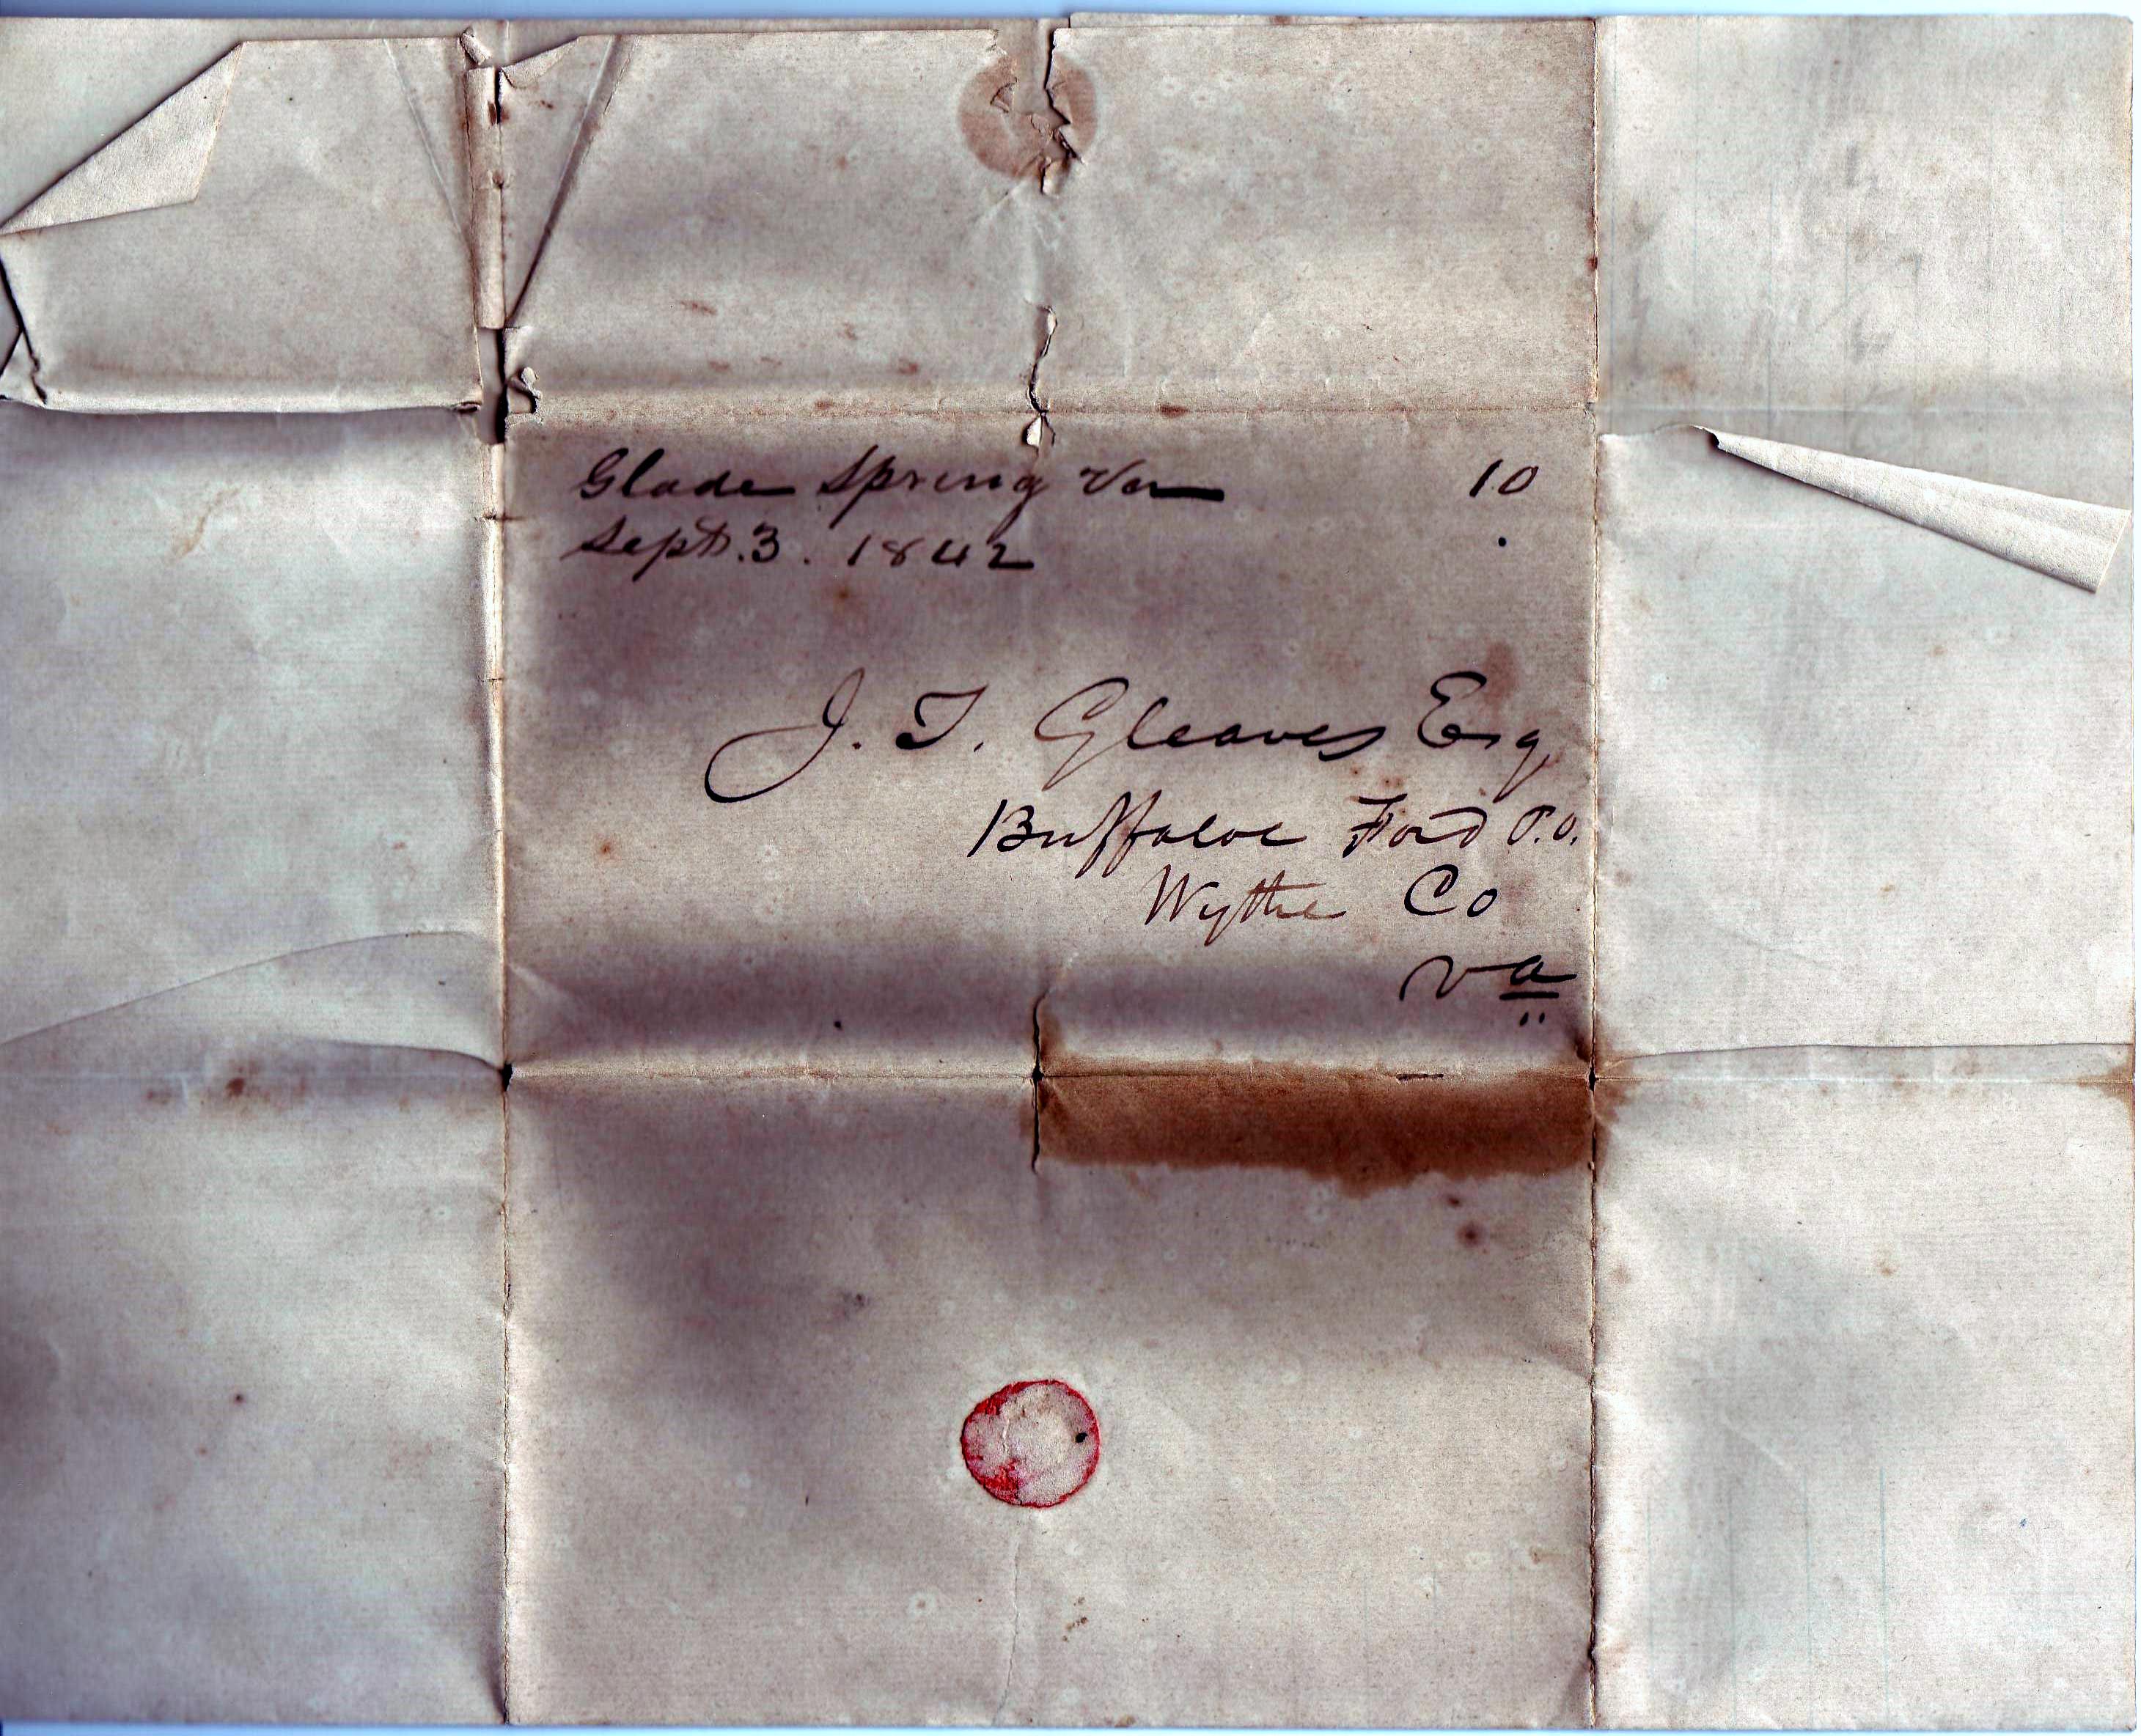 Glade Spring Va 10
Sept. 3. 1842
J. T. Gleaves Esq.
Buffaloe Ford P.O.
Wythe Co
Va